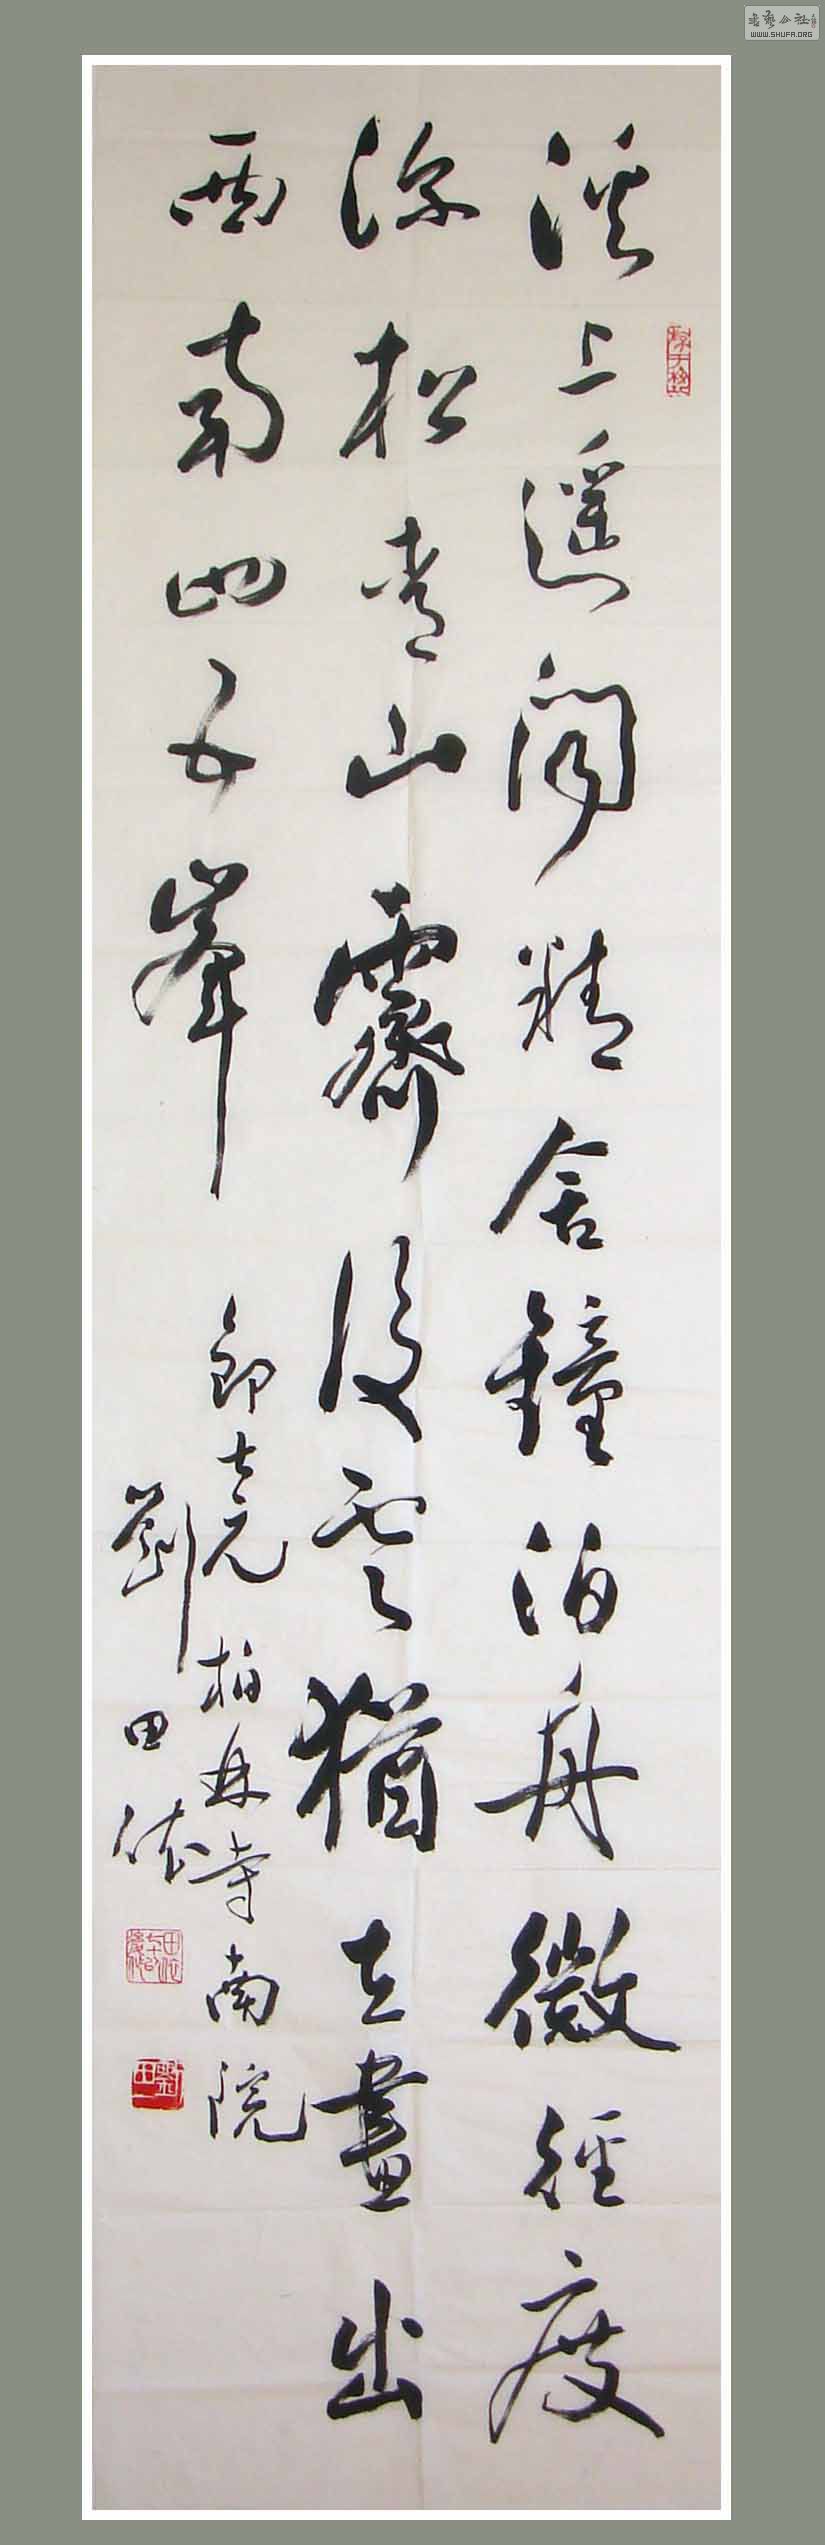 溪上遥闻精舍钟泊舟微径度
深松青山霽後雲犹在畫出
西南四五峯
郎士元 柏林寺南院
劉田依
書藝公社
WWW.SHUFA.ORG